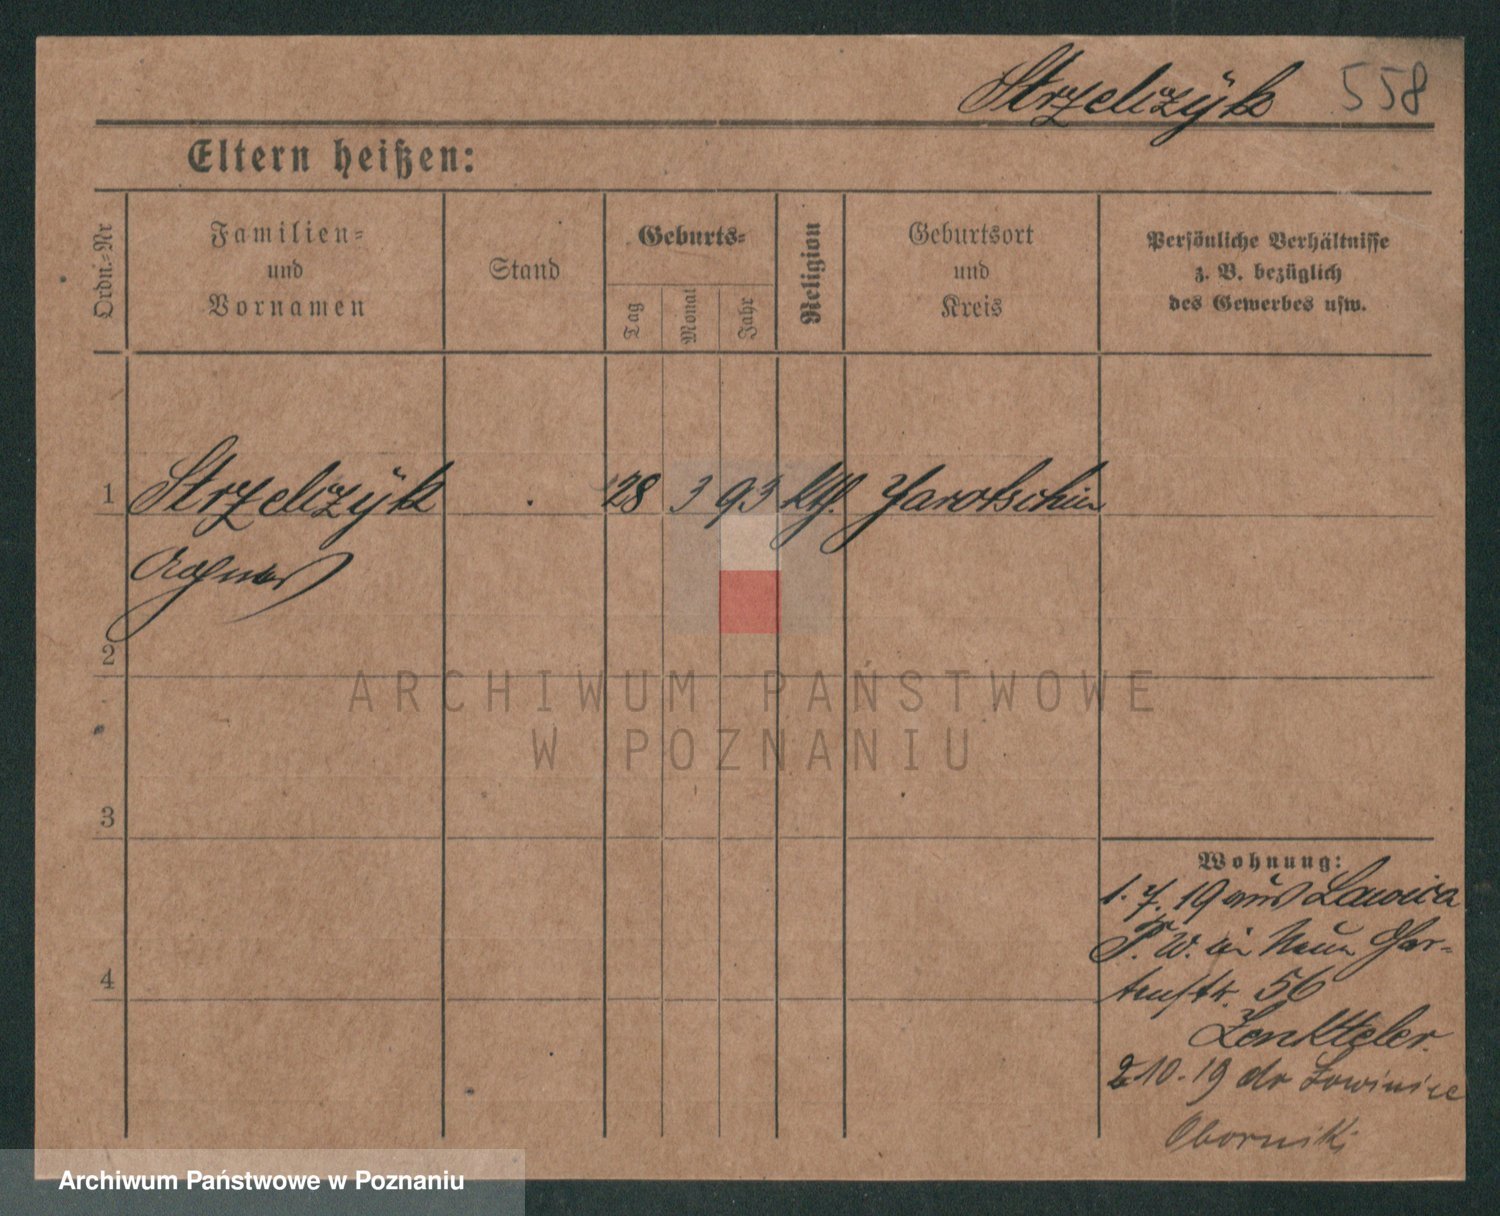 Strzelczÿk 558
Eltern heißen:
Ordn.-Nr
Familien-
und
Vornamen
Stand
Geburts-
Tag
Monat
Jahr
Religion
Geburtsort
und
Kreis
Persönliche Verhältnisse
z. B. bezüglich
des Gewerbes usw.
1 Strzelczÿk 28 3 93 kth. Jarotschin
Agnes
2
ARCHIWUM PAŃSTWOWE
W POZNANIU
3
4
Wohnung:
1. 7. 19 aus Lawica
P. W. in Neue Gar-
tenstr. 56
Zenkteler.
2 10. 19 do Łowiniec
Oborniki
Archiwum Państwowe w Poznaniu